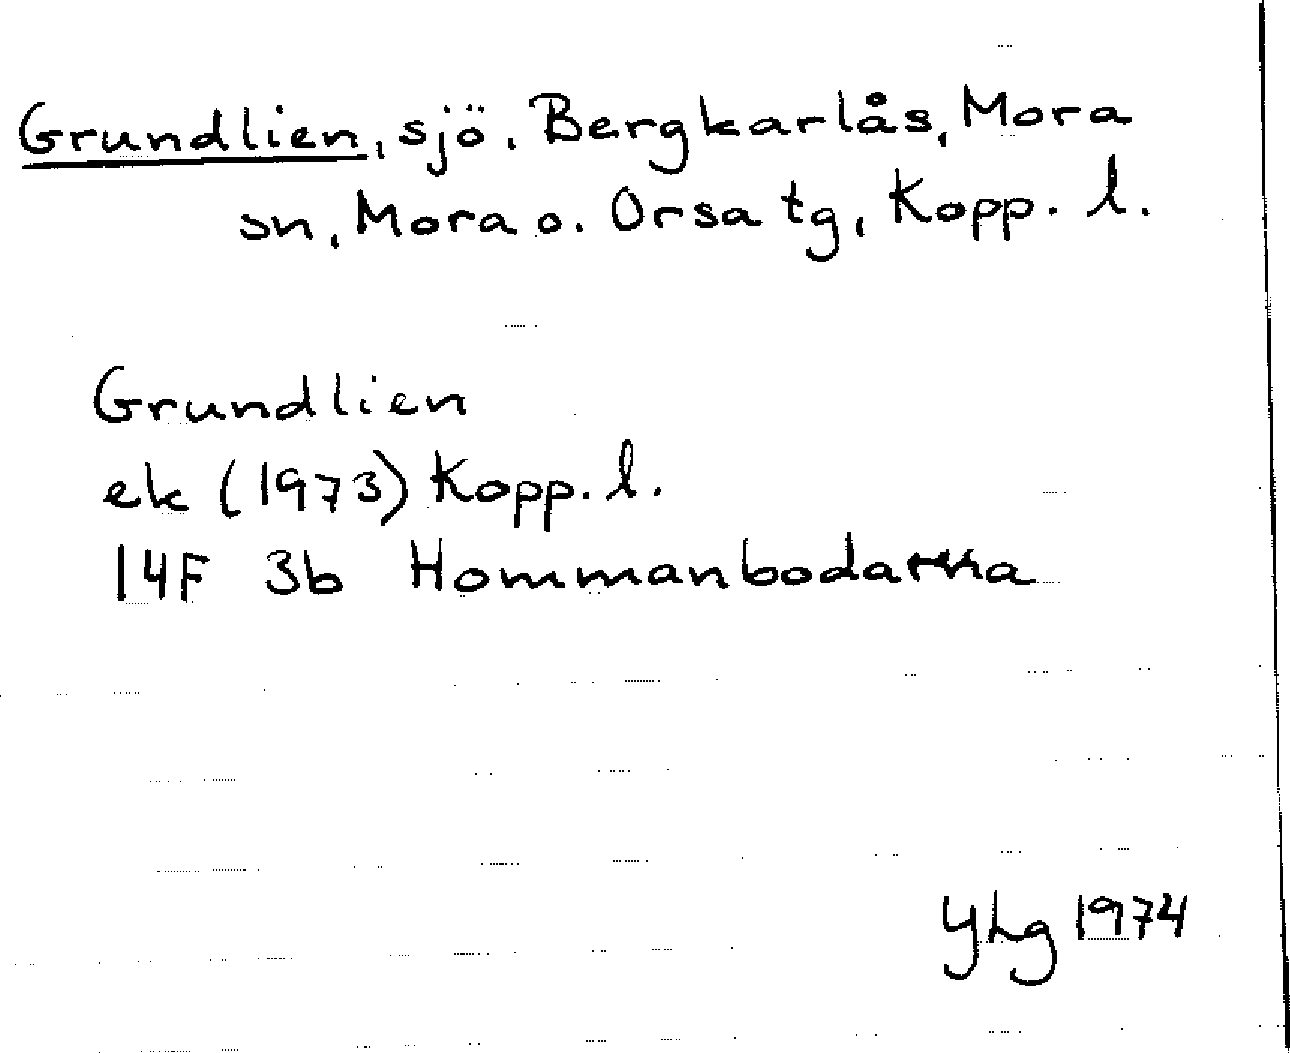 Grundlien, sjö, Bergkarlås, Mora
sn, Mora o. Orsa tg, Kopp. l.
Grundlien
ek (1973) Kopp. l.
14F 3b Hommanbodarna
YLg 1974